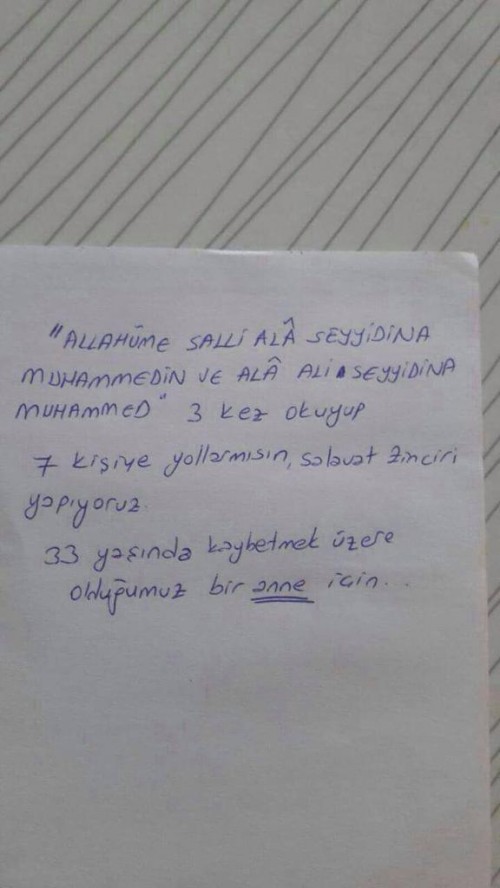 "ALLAHÜME SALLİ ALÂ SEYYİDİNA
MUHAMMEDİN VE ALÂ ALİ SEYYİDİNA
MUHAMMED" 3 kez okuyup
7 kişiye yollarmısın, salavat zinciri
yapıyoruz.
33 yaşında kaybetmek üzere
olduğumuz bir anne için...